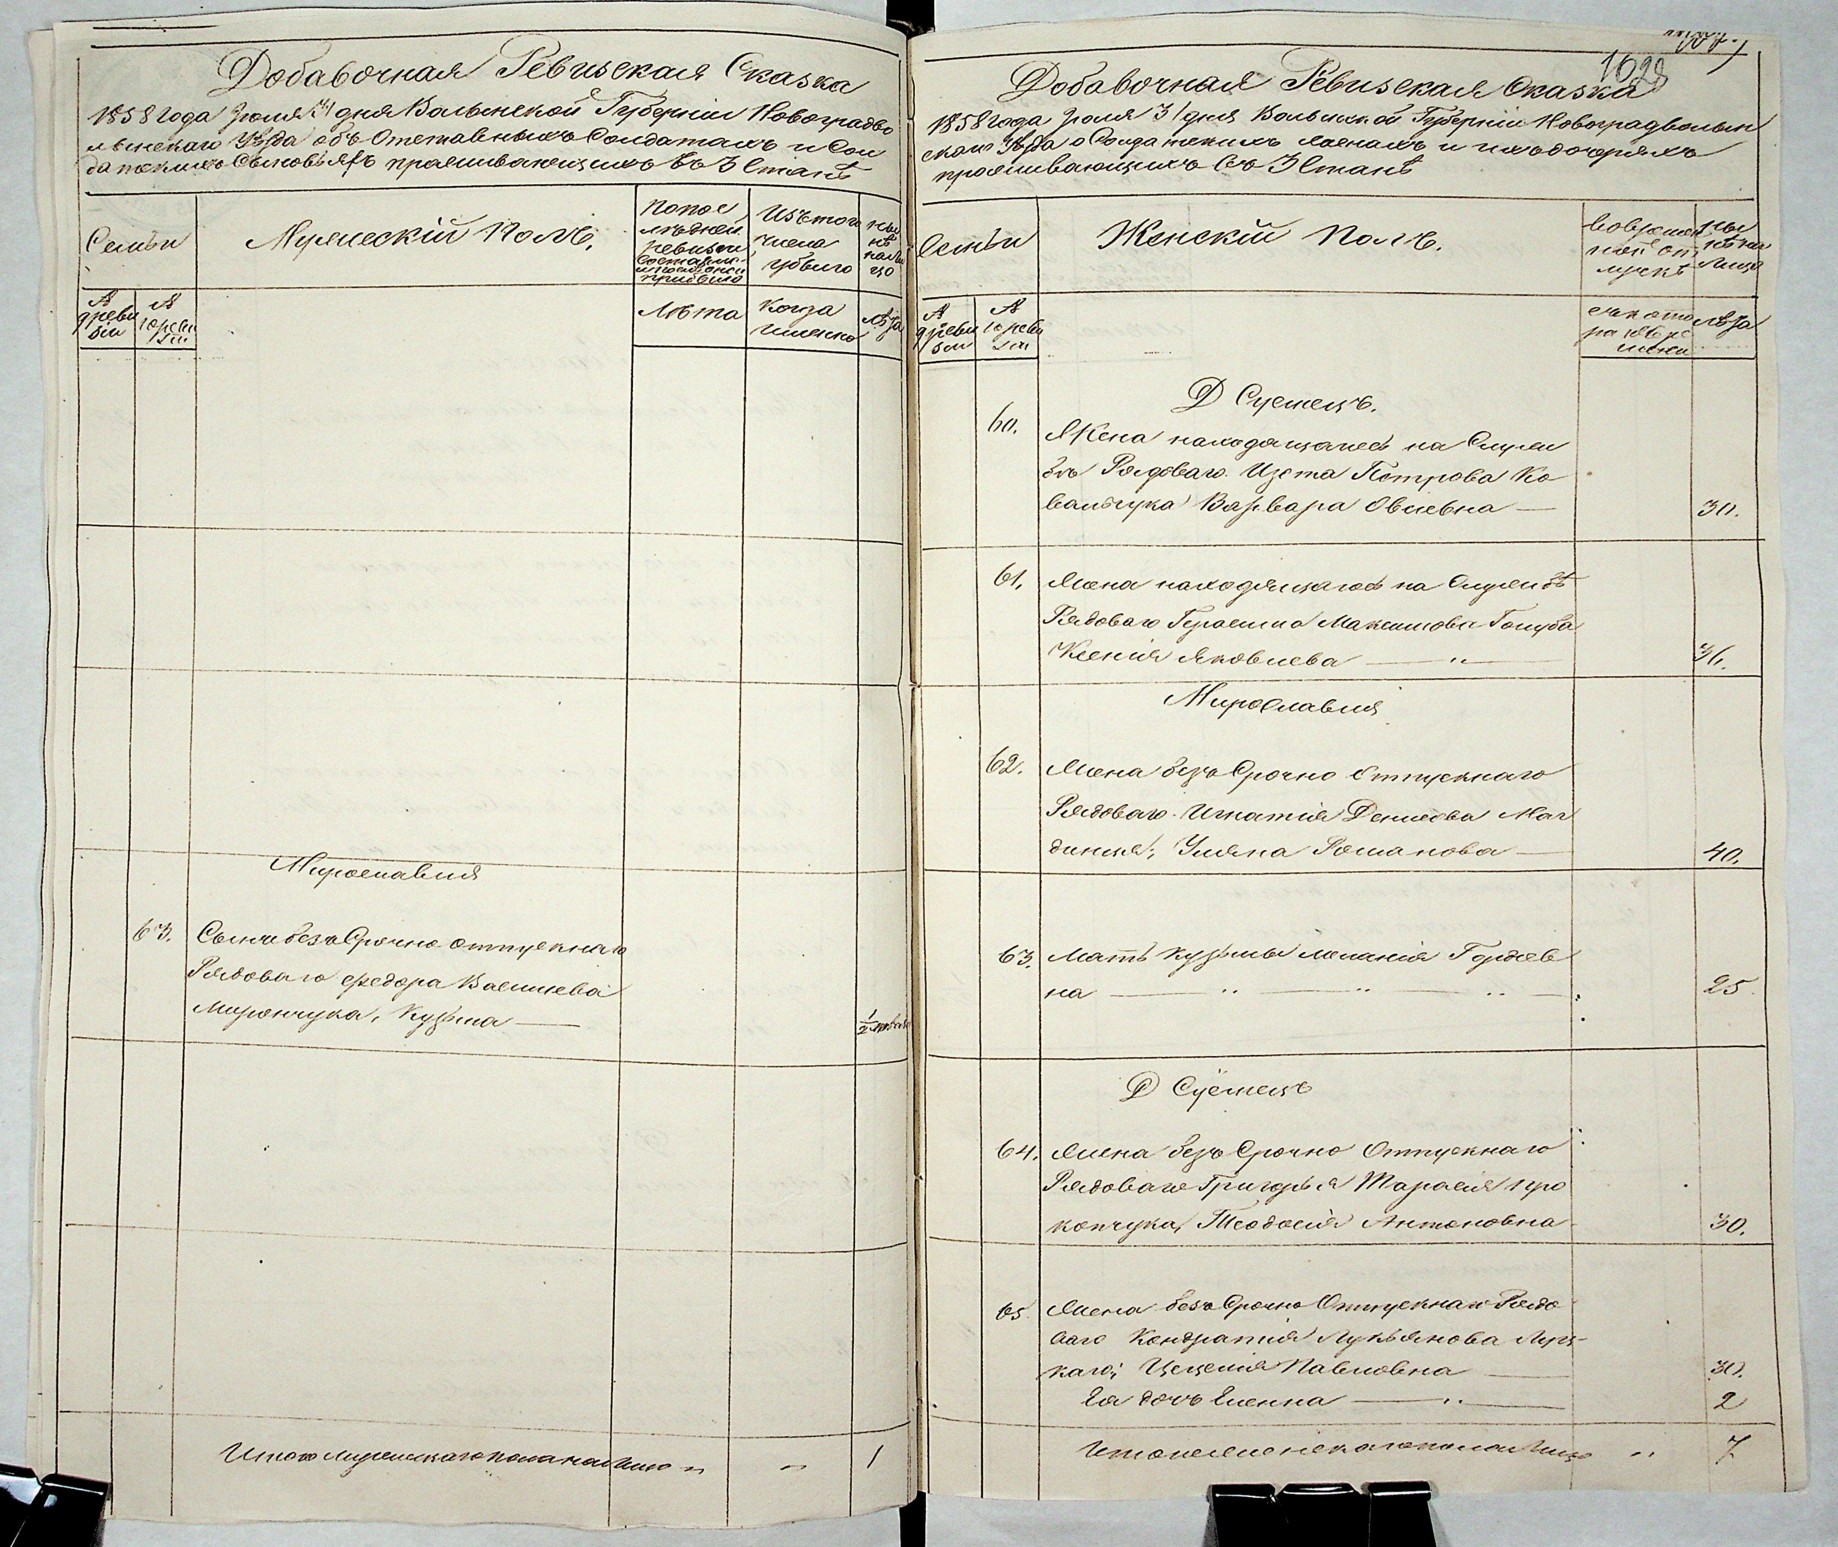 Добавочная Ревизская Сказка
1858 года Июля 31 дня Волынской Губерніи Новоградво
лынскаго Уѣзда объ Отставныхъ Солдатахъ и Сол
датскихъ Сыновьяхъ проживающихъ въ 3 Станѣ
Семьи
Мужескій Полъ.
По пос
лѣдней
ревизіи
состояло
и послѣ она
прибыло
Изъ того
числа
убыло
Ны
нѣ
на ли
цо
№
9 реви
зіи
№
10 реви
зіи
Лѣта
Когда
именно
Лѣта
Мирославля
63.
Сынъ безъ Срочно отпускнаго
Рядоваго Федора Васильева
Мирончука, Кузьма —
1/2
Итого Мужескаго пола на Лицо " " 1
1028
Добавочная Ревизская Сказка
1858 года Июля 31 дня Волынской Губерніи Новоградволын
скаго Уѣзда о Солдатскихъ женахъ и ихъ дочеряхъ
проживающихъ въ 3 Станѣ
Семьи
Женскій Полъ.
Во времен
ной от
лучкѣ
Ны
нѣ на
Лицо
№
9 реви
зіи
№
10 реви
зіи
съ кото
раго вре
мени
Лѣта
Д Суемецъ.
60.
Жена находящагося на Служ
бѣ Рядоваго Изота Петрова Ко
вальчука Варвара Овсиевна — 30.
61.
Жена находящагося на Службѣ
Рядоваго Герасима Максимова Голуба
Ксенія Яковлева — " — 36.
Мирославля
62.
Жена безъ Срочно Отпускнаго
Рядоваго Игнатія Денисова
Уляна Романова — 40.
63.
Мать Кузьмы Меланія Гордѣев
на — " — " — " — 25
Д Суемецъ
64.
Жена безъ Срочно Отпускнаго
Рядоваго Григорья Тарасія Про
копчука, Теодосія Антоновна 30.
65
Жена безъ Срочно Отпускнаго Рядо
ваго Кондратія Лукьянова Луц-
каго; Цецелія Павловна — 30.
Ея дочь Еленна — " — 2
Итого женскаго пола на Лицо " 7